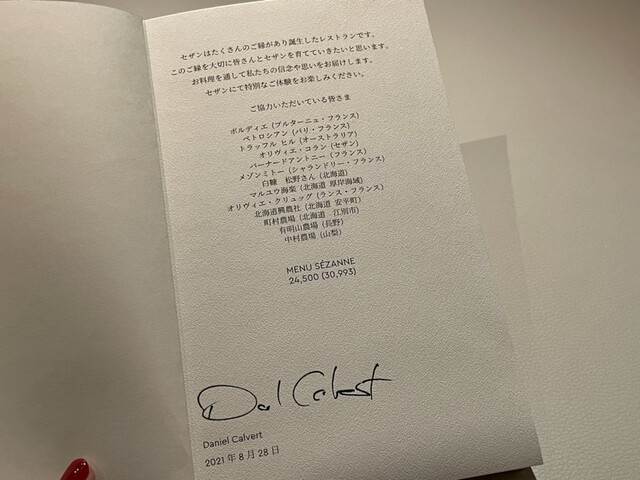 セザンはたくさんのご縁があり誕生したレストランです。
このご縁を大切に皆さんとセザンを育てていきたいと思います。
お料理を通して私たちの信念や思いをお届けします。
セザンにて特別なご体験をお楽しみください。
ご協力いただいている皆さま
ボルディエ (ブルターニュ・フランス)
ペトロシアン (パリ・フランス)
トラッフル ヒル (オーストラリア)
オリヴィエ・コラン (セザン)
バーナードアントニー (フランス)
メゾンミトー (シャランドリー・フランス)
白糠 松野さん (北海道)
マルユウ海楽 (北海道 厚岸海域)
オリヴィエ・クリュッグ (ランス・フランス)
北海道興農社 (北海道 安平町)
町村農場 (北海道 江別市)
有明山農場 (長野)
中村農場 (山梨)
MENU SÉZANNE
24,500 (30,993)
Dal Calvert
Daniel Calvert
2021 年 8 月 28 日